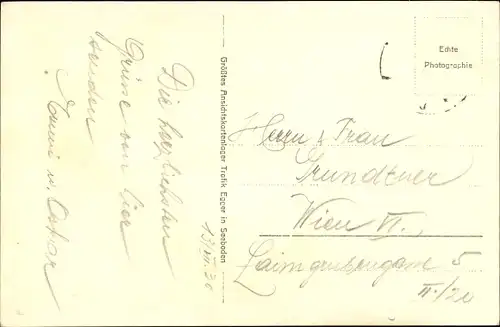 Die herzlichsten
Grüsse von hier
senden
u. Oskar
Größtes Ansichtskartenlager Trafik Egger in Seeboden
Echte
Photographie
Herrn u. Frau
Grundtner
Wien VI.
Laimgrubengasse 5
II/20